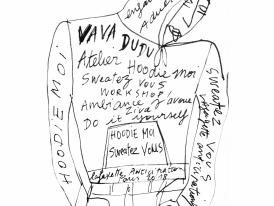 VAVA
DUDU
Atelier Hoodie moi
Sweatez
VOUS
WORKSHOP!
Ambiance j'avoue
ziva
Do it yourself
HOODIE MOI
Sweatez Vous
Lafayette ANTICIPATIONS
Paris 2018
HOODIE MOI
Sweatez Vous